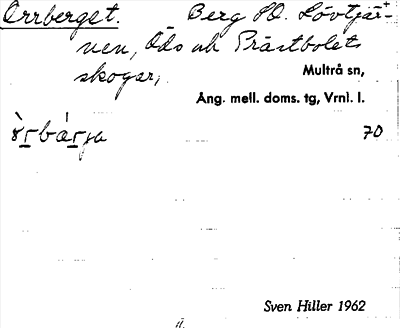 Orrberget. Berg SO. Lövtjär-
nen, Öds och Prästbolets
skogar,
Multrå sn,
Ång. mell. doms. tg, Vrnl. l.
70
Sven Hiller 1962